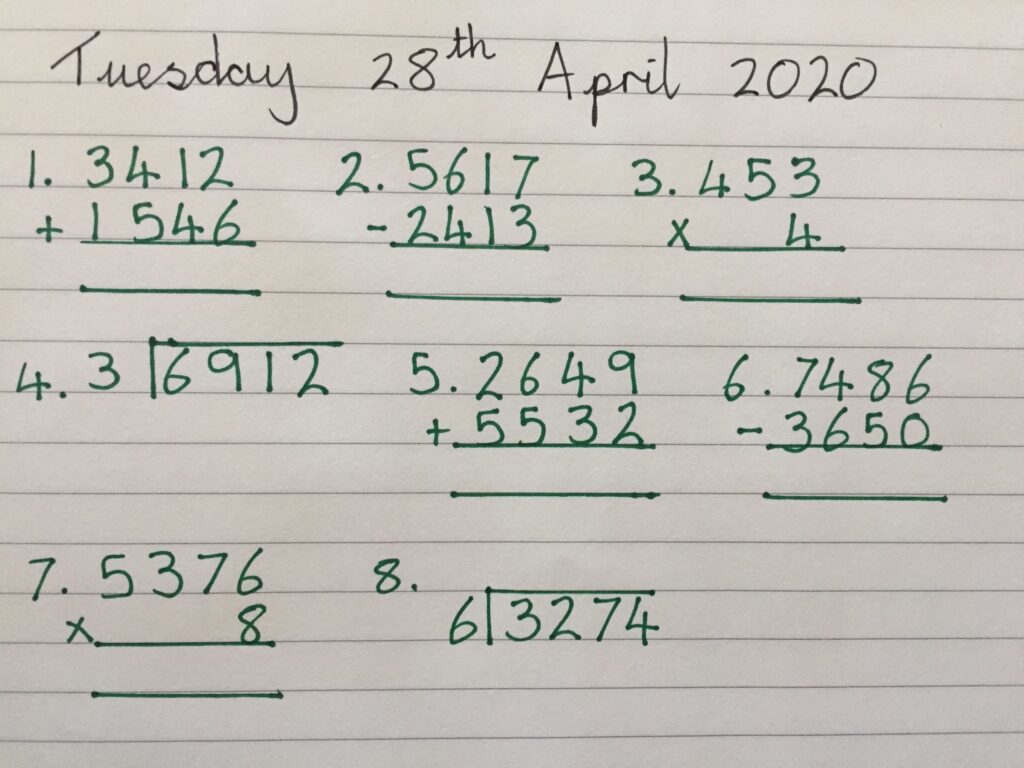 Tuesday 28th April 2020
1. 3412 2. 5617 3. 453
+ 1546 - 2413 x 4
4. 3 6912 5. 2649 6. 7486
+ 5532 - 3650
7. 5376 8.
x 8 6 3274